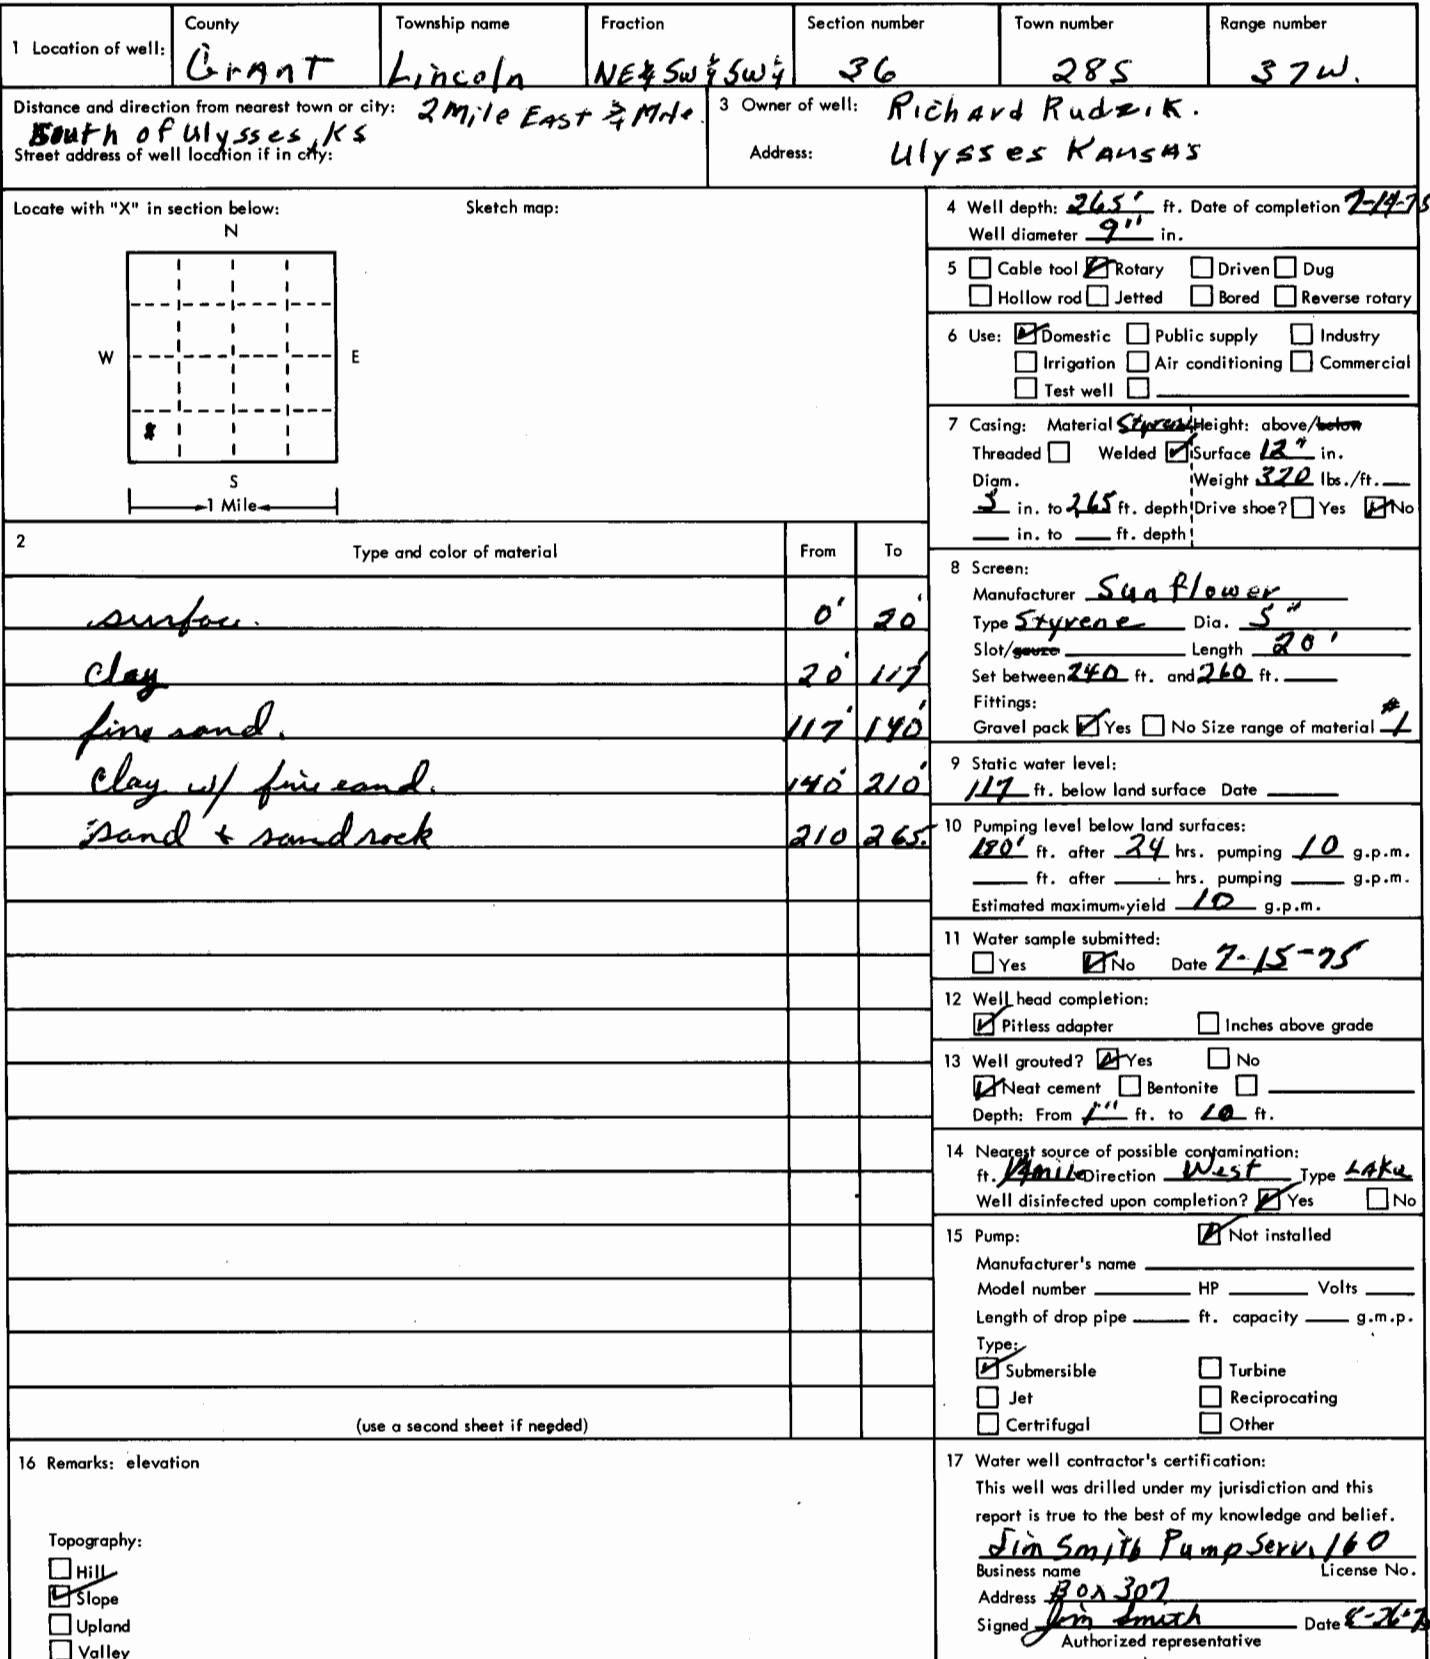 1 Location of well: County Township name Fraction Section number Town number Range number
Grant Lincoln NE¼ SW¼ SW¼ 36 28S 37W.
Distance and direction from nearest town or city: 2 Mile East ¾ Mile
South of Ulysses, KS
Street address of well location if in city:
3 Owner of well: Richard Rudzik.
Address: Ulysses Kansas
Locate with "X" in section below: Sketch map:
N
W E
S
1 Mile
2 Type and color of material From To
surface. 0' 20'
clay 20' 117'
fine sand. 117' 140'
clay w/ fine sand. 140' 210'
sand + sandrock 210 265.
(use a second sheet if needed)
4 Well depth: 265' ft. Date of completion 7-14-75
Well diameter 9" in.
5 Cable tool Rotary Driven Dug
Hollow rod Jetted Bored Reverse rotary
6 Use: Domestic Public supply Industry
Irrigation Air conditioning Commercial
Test well
7 Casing: Material Styrene Height: above/below
Threaded Welded Surface 12" in.
Diam. Weight 320 lbs./ft.
5 in. to 265 ft. depth Drive shoe? Yes No
in. to ft. depth
8 Screen:
Manufacturer Sunflower
Type Styrene Dia. 5"
Slot/gauze Length 20'
Set between 240 ft. and 260 ft.
Fittings:
Gravel pack Yes No Size range of material #1
9 Static water level:
117 ft. below land surface Date
10 Pumping level below land surfaces:
180' ft. after 24 hrs. pumping 10 g.p.m.
ft. after hrs. pumping g.p.m.
Estimated maximum yield 10 g.p.m.
11 Water sample submitted:
Yes No Date 7-15-75
12 Well head completion:
Pitless adapter Inches above grade
13 Well grouted? Yes No
Neat cement Bentonite
Depth: From 1" ft. to 10 ft.
14 Nearest source of possible contamination:
ft. mile Direction West Type Lake
Well disinfected upon completion? Yes No
15 Pump: Not installed
Manufacturer's name
Model number HP Volts
Length of drop pipe ft. capacity g.m.p.
Type:
Submersible Turbine
Jet Reciprocating
Certrifugal Other
16 Remarks: elevation
Topography:
Hill
Slope
Upland
Valley
17 Water well contractor's certification:
This well was drilled under my jurisdiction and this
report is true to the best of my knowledge and belief.
Jim Smith Pump Serv. 160
Business name License No.
Address Box 307
Signed Jim Smith Date 8-26-7
Authorized representative